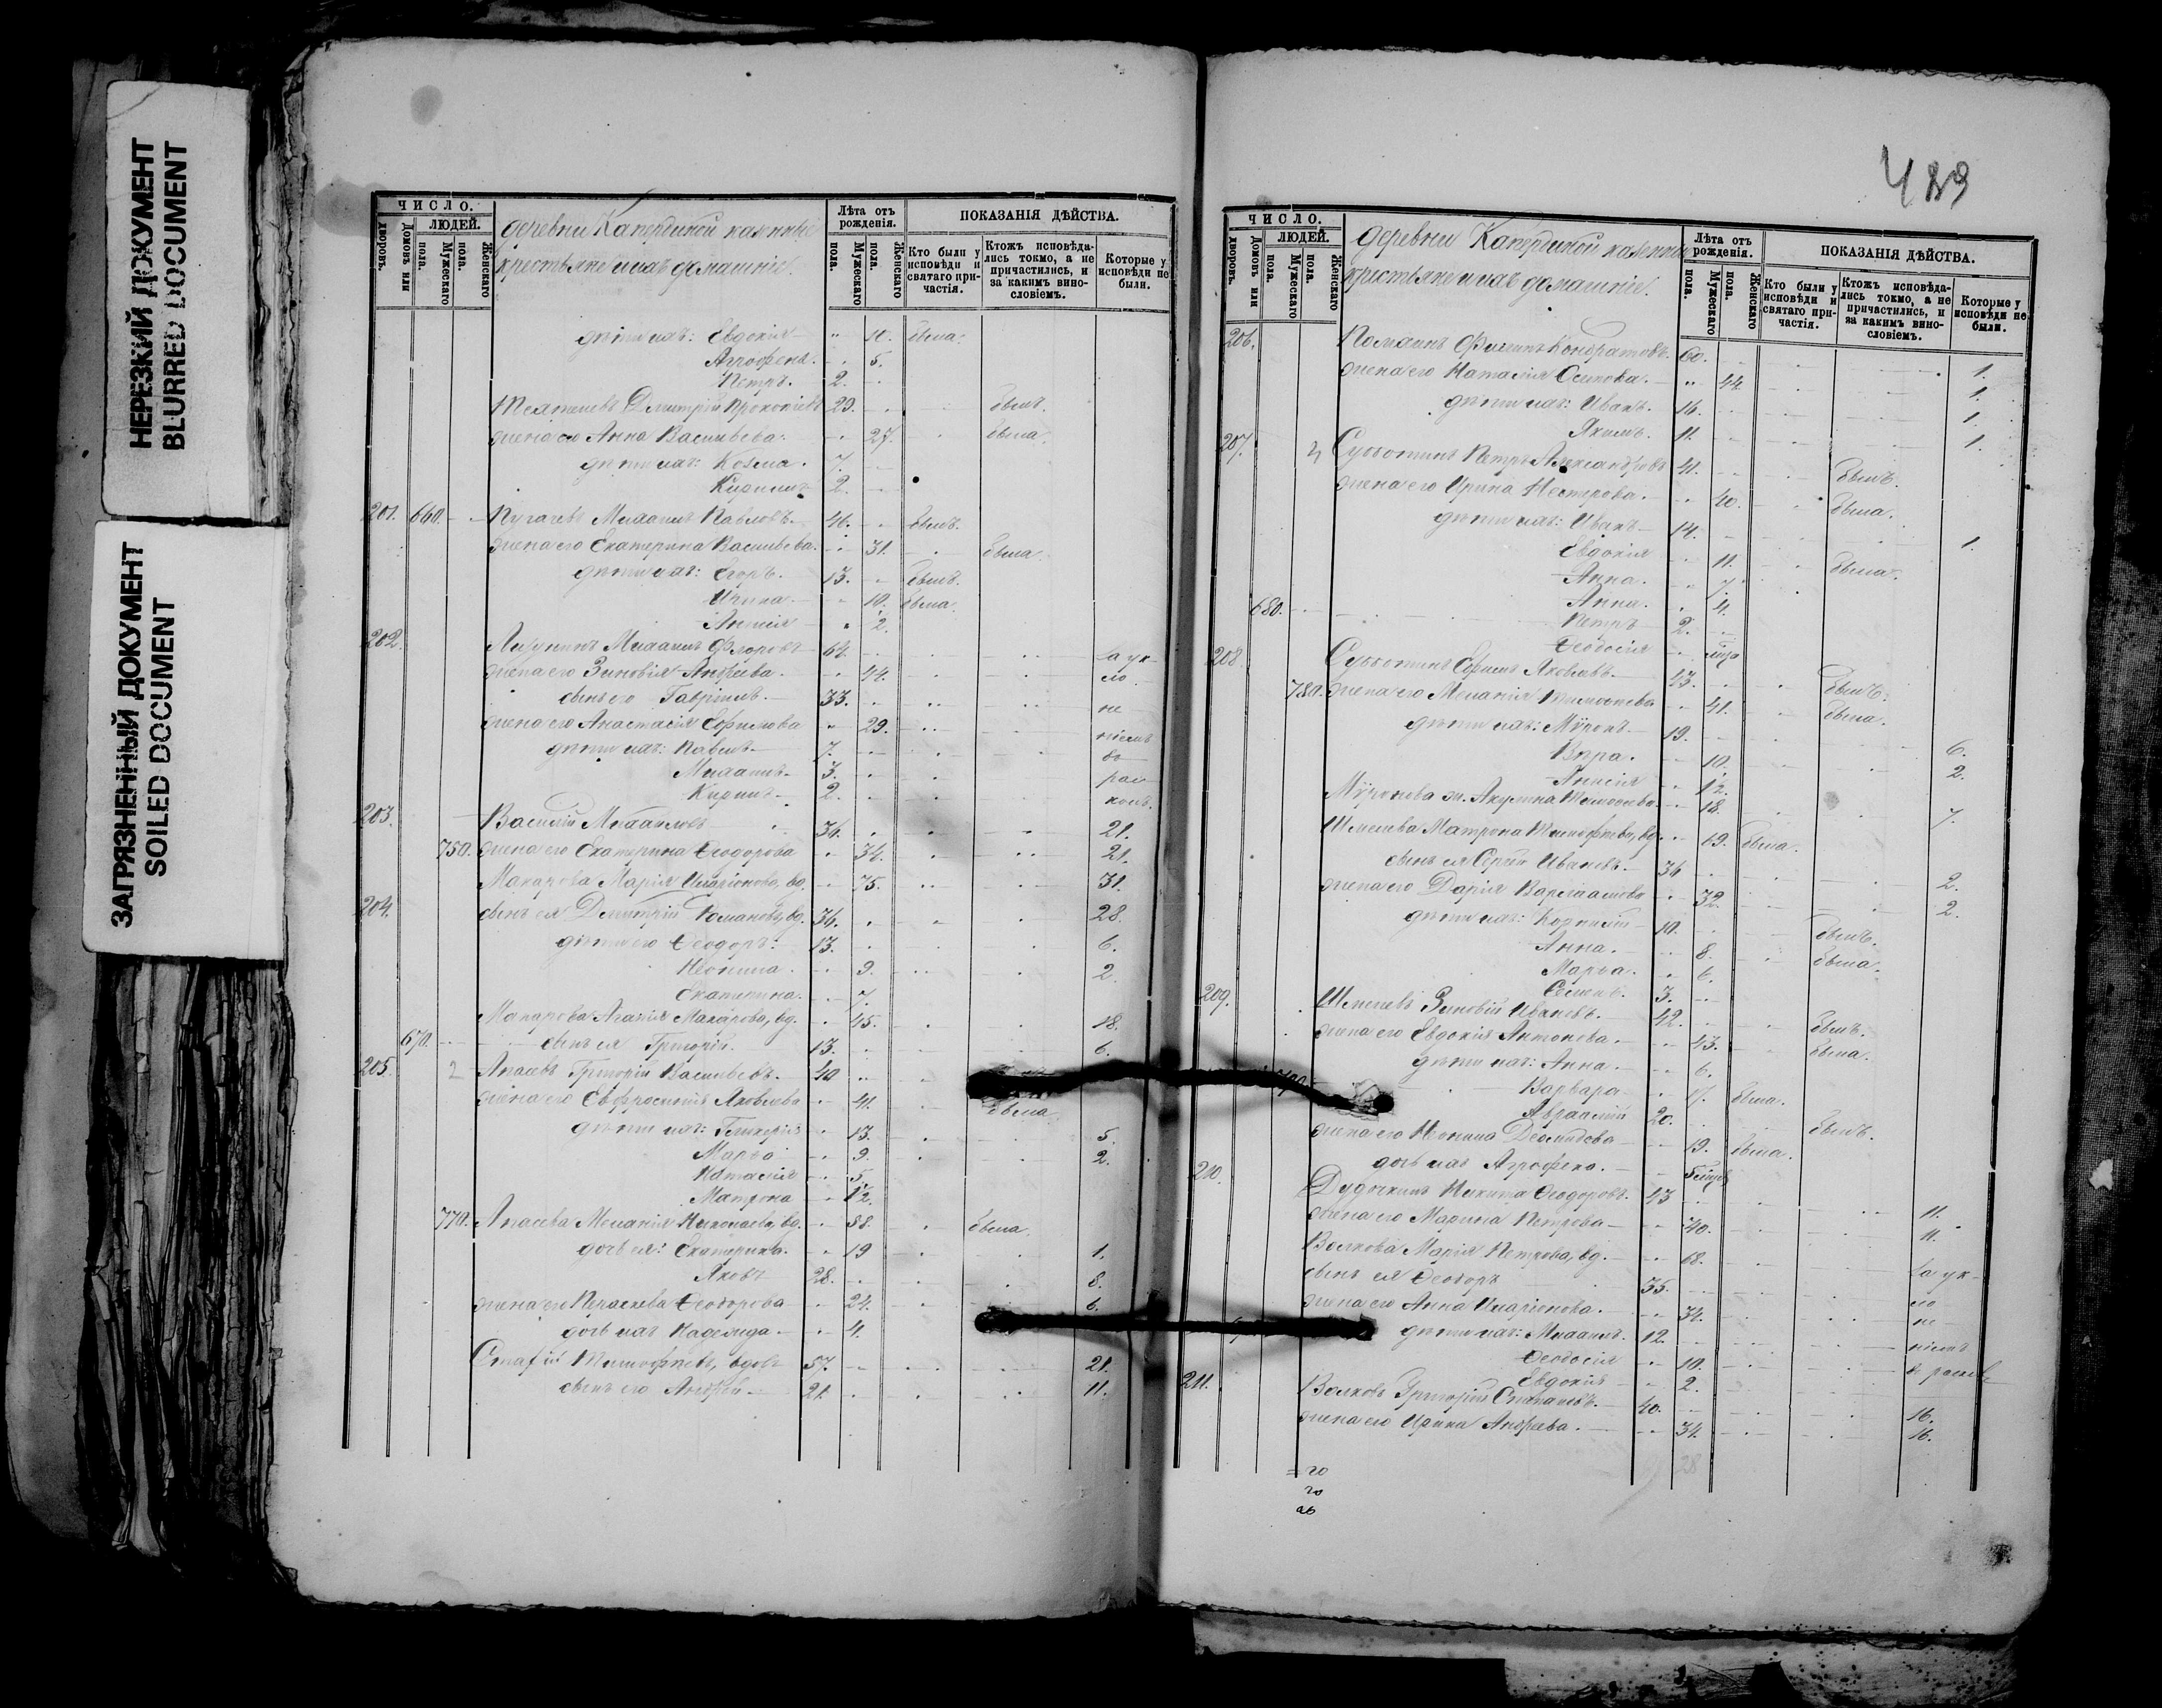 НЕРЕЗКИЙ ДОКУМЕНТ
BLURRED DOCUMENT
ЗАГРЯЗНЕННЫЙ ДОКУМЕНТ
SOILED DOCUMENT
ЧИСЛО.
ЛЮДЕЙ.
Домовъ или дворовъ.
Мужескаго пола.
Женскаго пола.
деревни
крестьяне и ихъ домашніе.
Лѣта отъ рожденія.
Мужескаго пола.
Женскаго пола.
ПОКАЗАНІЯ ДѢЙСТВА.
Кто были у исповѣди и святаго причастія.
Ктожъ исповѣдались токмо, а не причастились, и за какимъ винословіемъ.
Которые у исповѣди не были.
дѣти ихъ: Евдокія 10. была.
Агрофена. 5.
Петръ. 2.
Дмитрій Прокопіевъ 29. былъ.
жена его Анна Васильева 27. была.
дѣти ихъ: Козма. 7.
Кирилъ 2.
201. 660. Пугачевъ Михаилъ Павловъ. 46. былъ.
жена его Екатерина Васильева. 31. была.
дѣти ихъ: Егоръ. 13. былъ.
Ирина. 10. была.
Анисія 2.
202. Михаилъ Флоровъ 64. за ук-
жена его Зиновія Андреева. 44. ло
сынъ его Гавріилъ. 33. не
жена его Анастасія Ефимова 29. ніемъ
дѣти ихъ: Павелъ 7. во
Михаилъ 3. рас
Кирилъ 2. колъ.
203. Василій Михаиловъ 36. 21.
750. жена его Екатерина Ѳеодорова 34. 21.
Макарова Марія Иларіонова, вд. 75. 31.
204. сынъ ея Дмитрій Романовъ, вд. 36. 28.
дѣти его Ѳеодоръ. 13. 6.
Неонила. 9. 2.
Екатерина. 7.
Макарова Агапія Макарова, вд. 45. 18.
670. сынъ ея Григорій. 13. 6.
205. 2 Григорій Васильевъ. 40
жена его Евфросинія Яковлева 41. была
дѣти ихъ: Гликерія 13. 5.
Марѳа 9. 2.
Наталія 5.
Матрона 1/2.
770. Меланія Николаева, вд. 58. была.
дочь ея: Екатерина. 19 1.
Яковъ 28. 8.
жена его Ѳеодорова 24. 6.
дочь ихъ Надежда. 4.
Тимоѳеевъ, вдовъ 57. 21.
сынъ его Андрей. 21. 11.
489
ЧИСЛО.
ЛЮДЕЙ.
Домовъ или дворовъ.
Мужескаго пола.
Женскаго пола.
деревни
крестьяне и ихъ домашніе.
Лѣта отъ рожденія.
Мужескаго пола.
Женскаго пола.
ПОКАЗАНІЯ ДѢЙСТВА.
Кто были у исповѣди и святаго причастія.
Ктожъ исповѣдались токмо, а не причастились, и за какимъ винословіемъ.
Которые у исповѣди не были.
206. Филипъ Кондратовъ. 60. 1.
жена его Наталія Осипова. 44. 1.
дѣти ихъ: Иванъ. 16. 1.
Якимъ. 11. 1.
207. Субботинъ Петръ Александровъ 41. былъ.
жена его Ирина Нестрова. 40. была.
дѣти ихъ: Иванъ 14. 1.
Евдокія 11. была.
Анна. 7.
680. Анна. 4.
Петръ 2.
Ѳеодосія
208. Субботинъ Ефимъ Яковлевъ. 43. былъ.
780. жена его Меланія Тимоѳеева 41. была.
дѣти ихъ: Мѵронъ. 19. 6.
Вѣра. 10. 2.
Анисія 1/2.
Мѵронова ж. Акулина 18. 7.
Шмелева Матрона Тимоѳеева, вд. 69. была.
сынъ ея Сергій Ивановъ. 36 2.
жена его Дарія Варлаамова 32. 2.
дѣти ихъ: Корнилій 10. былъ.
Анна. 8. была.
Марѳа. 6.
Семенъ. 3.
209. Шмелевъ Зиновій Ивановъ. 42. былъ.
жена его Евдокія Антонова. 43. была.
дѣти ихъ: Анна. 6.
Варвара 17. была.
Авраамій 20. былъ.
жена его Неонила 19. была.
дочь ихъ Агрофена.
210. Дудочкинъ Никита Ѳеодоровъ. 43 11.
жена его Марина Петрова 40. 11.
Волкова Марія Петрова, вд. 68. за ук-
сынъ ея Ѳеодоръ 35. ло
жена его Анна Иларіонова. 34. не
дѣти ихъ: Михаилъ. 12. ніемъ
Ѳеодосія 10.
Евдокія 2.
211. Волковъ Григорій Степановъ. 40. 16.
жена его Ирина Андреева. 34. 16.
28